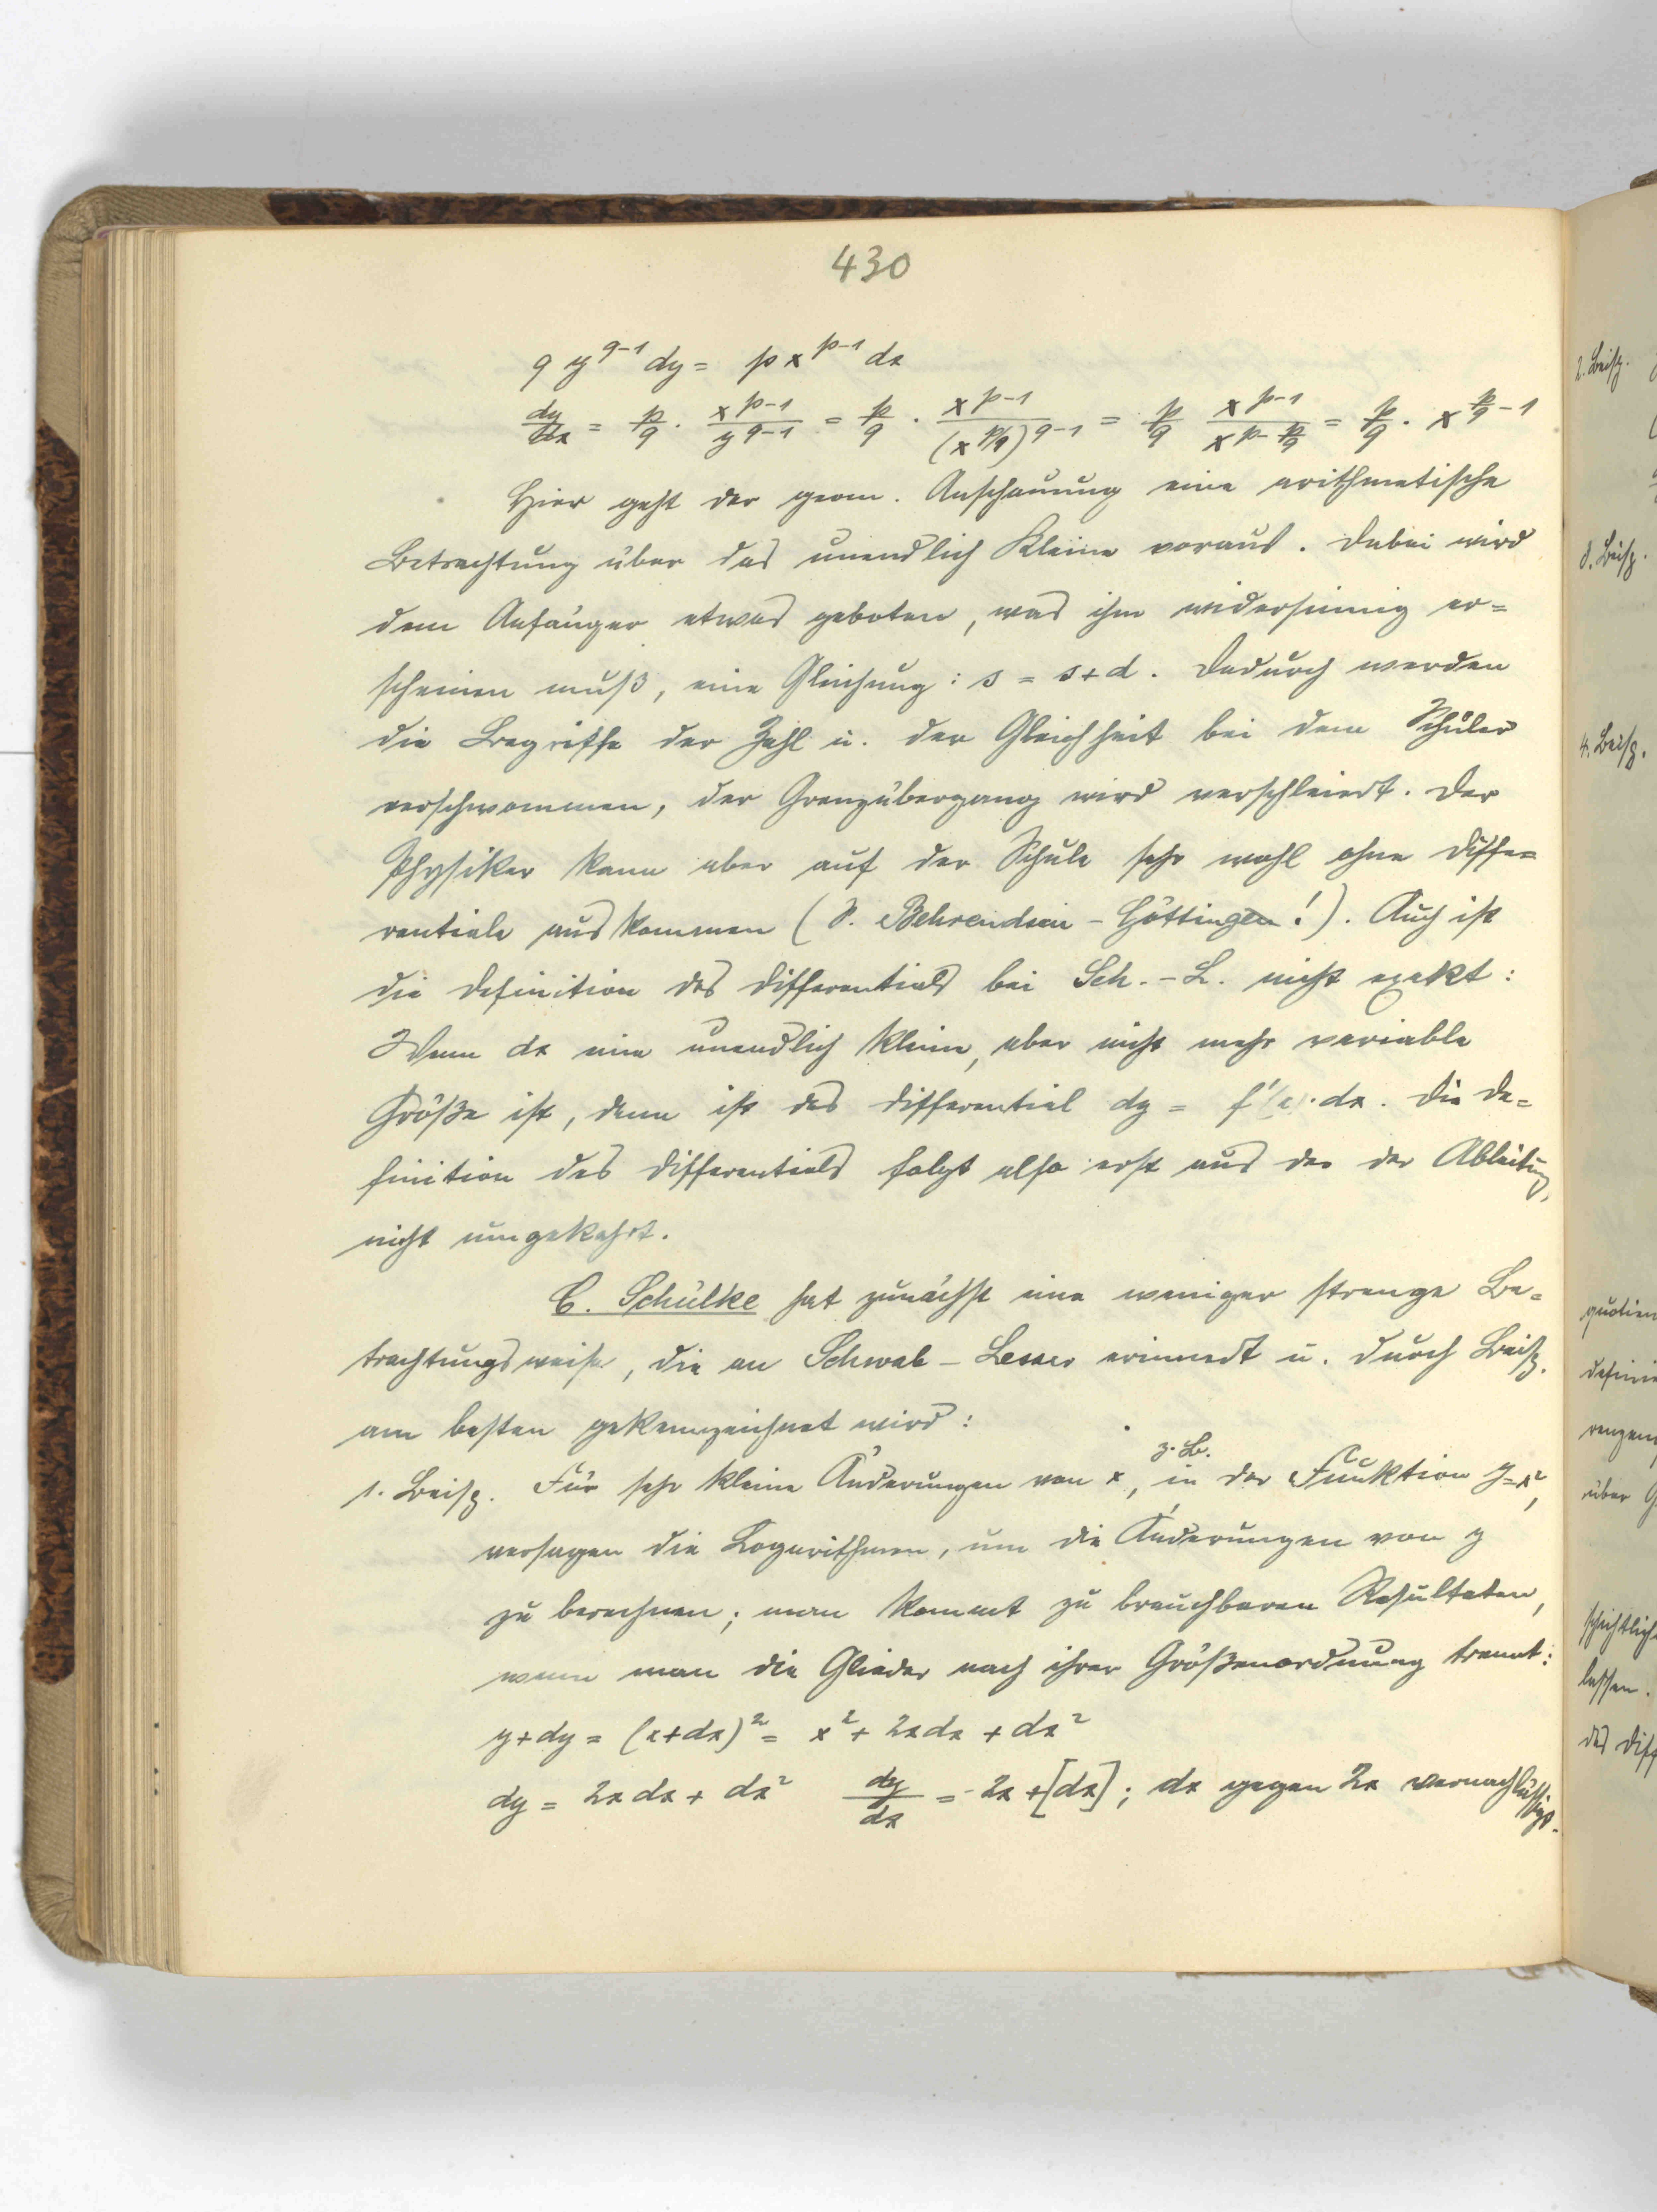 430
q y^{q-1} dy = p x^{p-1} dx
dy/dx = p/q · x^{p-1}/y^{q-1} = p/q · x^{p-1}/(x^{p/q})^{q-1} = p/q x^{p-1}/x^{p-p/q} = p/q · x^{p/q-1}
Hier geht der geom. Anschauung eine arithmetische
Betrachtung über das unendlich Kleine voraus. Dabei wird
dem Anfänger etwas geboten, was ihm widersinnig er=
scheinen muß, eine Gleichung: s = s+d. Dadurch werden
die Begriffe der Zahl u. der Gleichheit bei dem Schüler
verschwommen, der Grenzübergang wird verschleiert. Der
Physiker kann aber auf der Schule sehr wohl ohne Diffe=
rentiale auskommen (S. Behrendsen - Göttingen!). Auch ist
die Definition des Differentials bei Sch.-L. nicht exakt:
Wenn dx eine unendlich kleine, aber nicht mehr variable
Größe ist, dann ist das Differential dy = f'(x)·dx. Die De=
finition des Differentials folgt also erst aus der der Ableitung,
nicht umgekehrt.
C. Schülke hat zunächst eine weniger strenge Be=
trachtungsweise, die an Schwab - Lesser erinnert u. durch Beisp.
am besten gekennzeichnet wird:
1. Beisp. Für sehr kleine Änderungen von x, z.B. in der Funktion y=x²,
versagen die Logarithmen, um die Änderungen von y
zu berechnen; man kommt zu brauchbaren Resultaten,
wenn man die Glieder nach ihrer Größenordnung trennt:
y+dy = (x+dx)² = x² + 2xdx + dx²
dy = 2x dx + dx² dy/dx = 2x +[dx]; dx gegen 2x vernachlässigt.
2. Beisp.
3. Beisp.
4. Beisp.
quotien
über
lassen.
des Diff